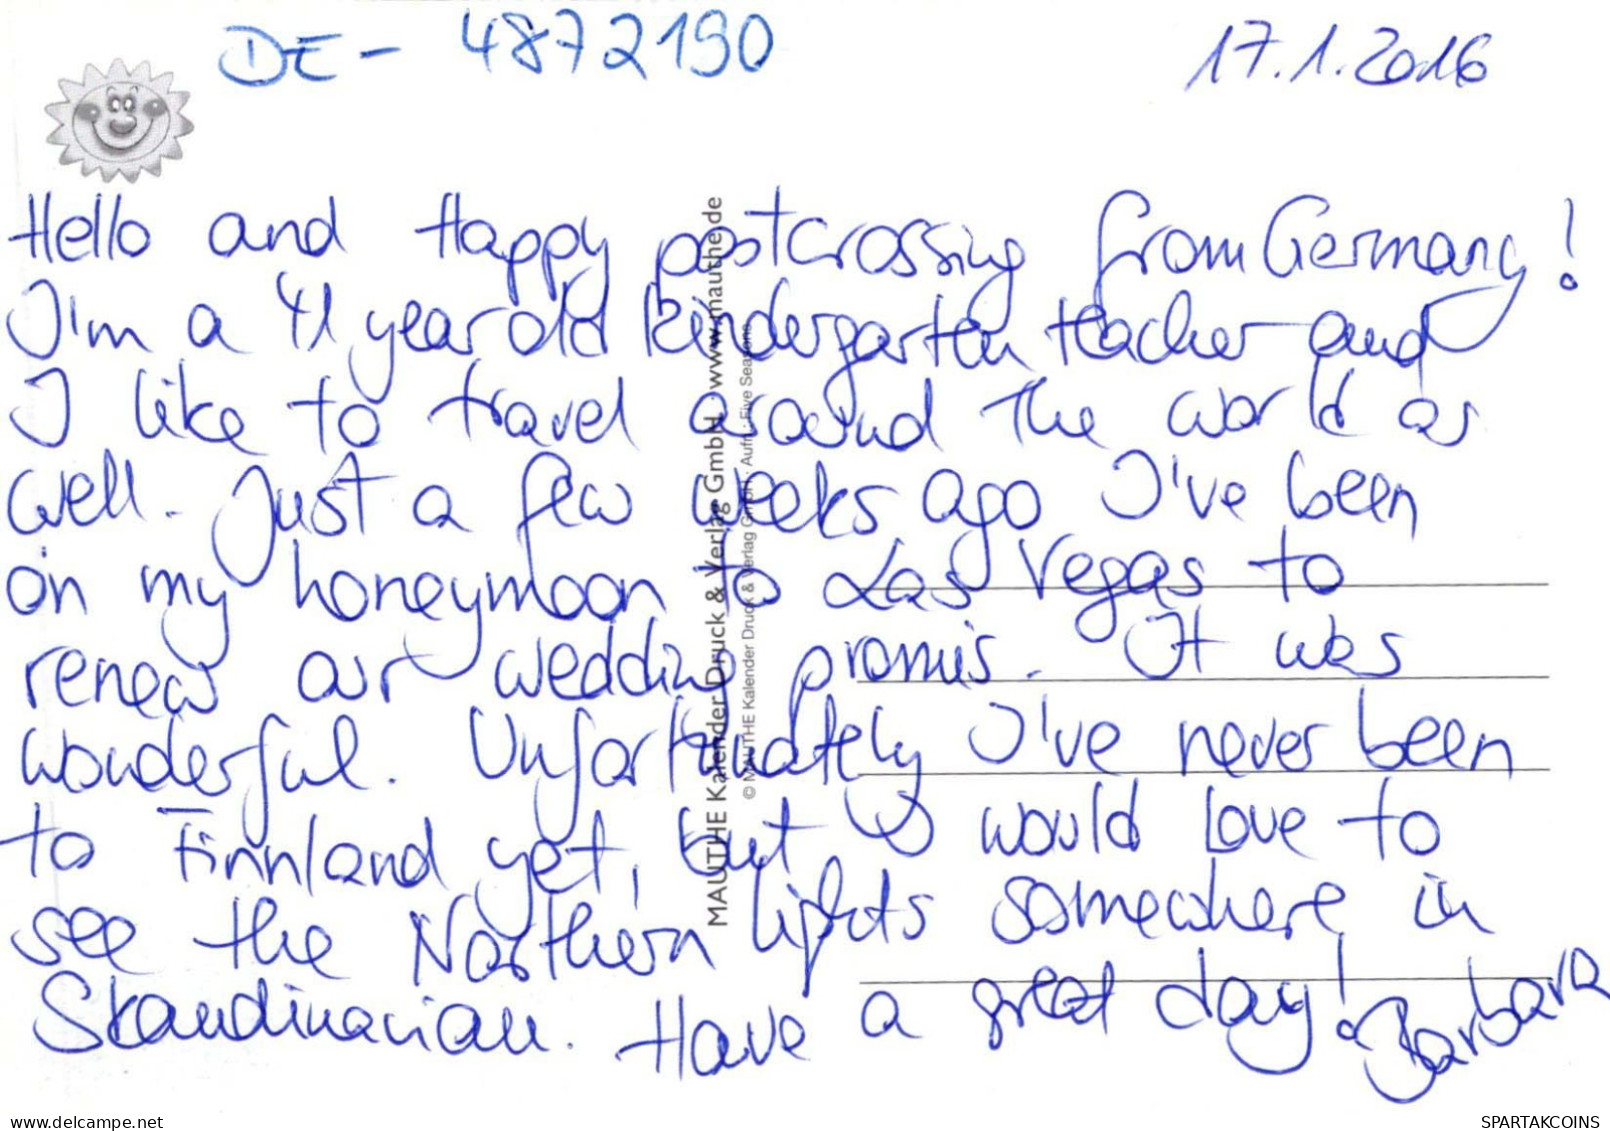 DE - 4872190
17.1.2016
Hello and Happy postcrossing from Germany!
I'm a 41 year old kindergarten teacher and
I like to travel around the world as
well. Just a few weeks ago I've been
on my honeymoon to Las Vegas to
renew our wedding promis. It was
wonderful. Unfortunately I've never been
to Finnland yet, but I would love to
see the Northern lights somewhere in
Skandinavian. Have a great day!
Barbara
MAUTHE Kalender Druck & Verlag GmbH · www.mauthe.de
© MAUTHE Kalender Druck & Verlag GmbH · Aufn.: Five Seasons
delcampe.net
SPARTAKCOINS